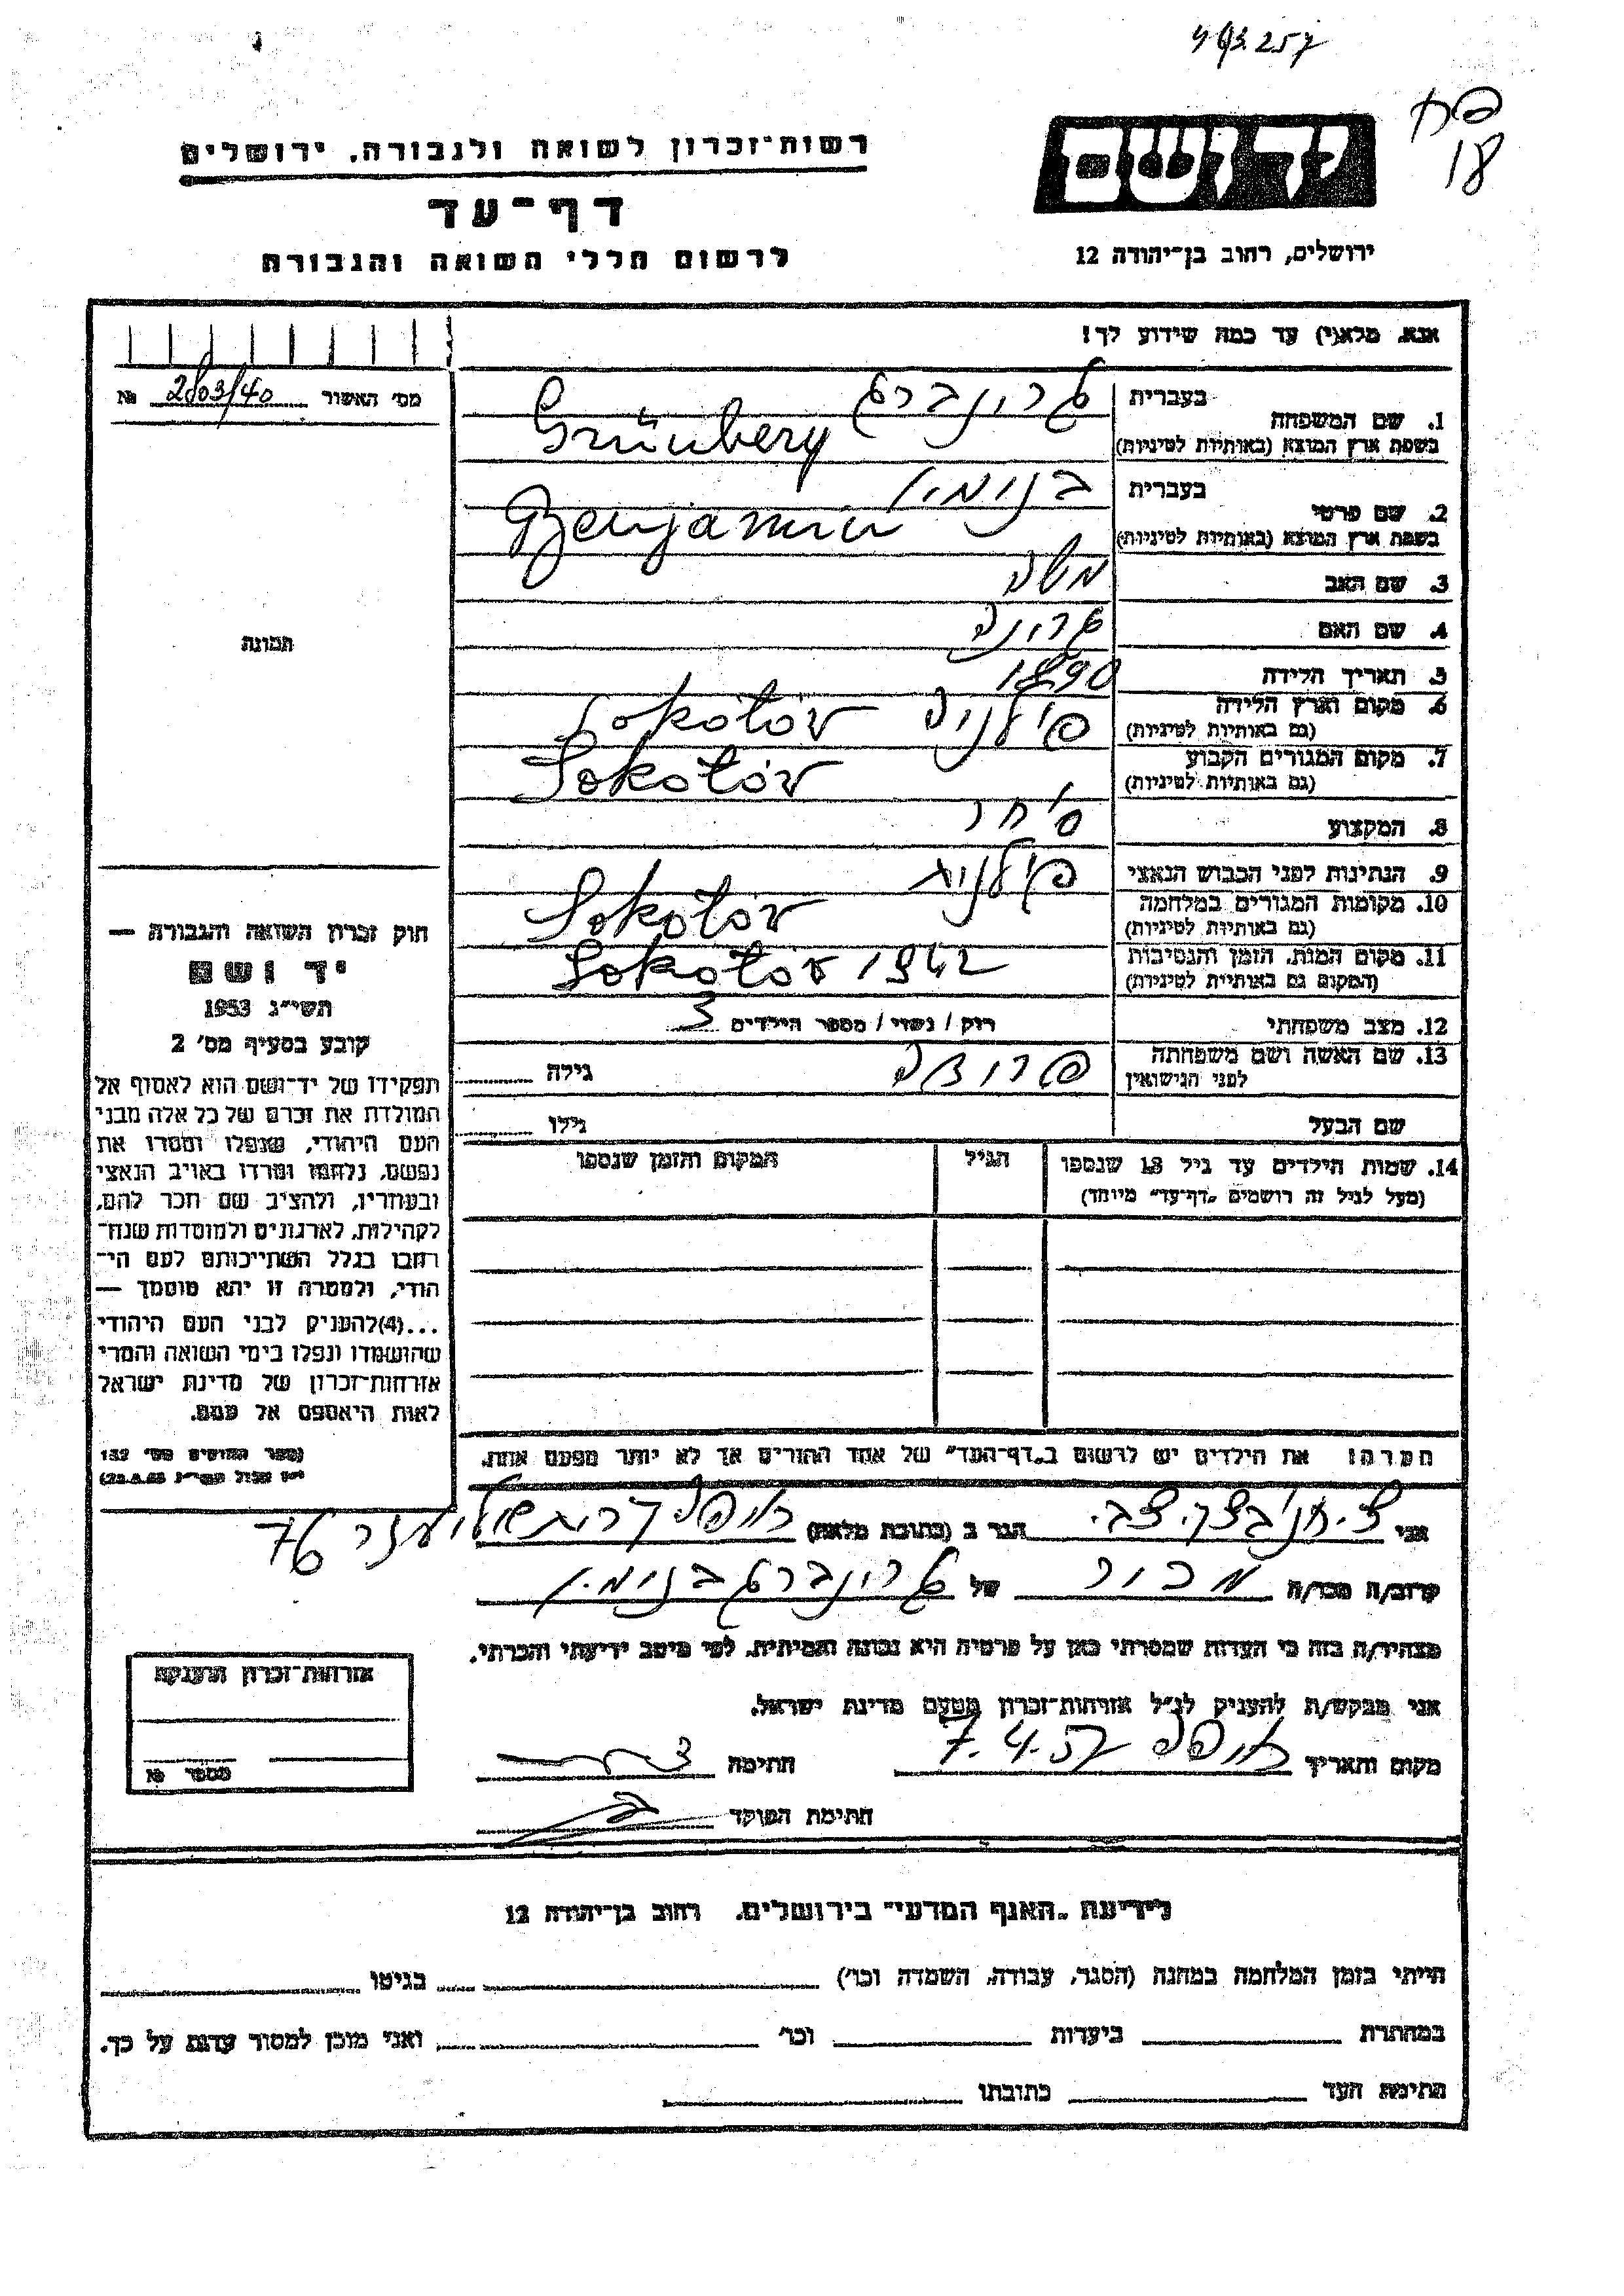 רשות־זכרון לשואה ולגבורה, ירושלים
דף־עד
לרשום חללי השואה והגבורה
יד ושם
ירושלים, רחוב בן־יהודה 12
18
אנא, מלא(י) עד כמה שידוע לך!
מס' האשור № 2803/40
1. שם המשפחה בעברית גרונברג
בשפת ארץ המוצא (באותיות לטיניות) Grünberg
2. שם פרטי בעברית בנימין
בשפת ארץ המוצא (באותיות לטיניות) Benjamin
3. שם האב משה
4. שם האם גרונה
5. תאריך הלידה 1890
6. מקום וארץ הלידה פולניה Sokołów
(גם באותיות לטיניות)
7. מקום המגורים הקבוע Sokołów
(גם באותיות לטיניות)
8. המקצוע סוחר
9. הנתינות לפני הכבוש הנאצי פולנית
10. מקומות המגורים במלחמה Sokołów
(גם באותיות לטיניות)
11. מקום המות, הזמן והנסיבות Sokołów 1942
(המקום גם באותיות לטיניות)
12. מצב משפחתי רוק / נשוי / מספר הילדים 3
13. שם האשה ושם משפחתה פרומה גילה
לפני הנישואין
שם הבעל גילו
14. שמות הילדים עד גיל 18 שנספו הגיל המקום והזמן שנספו
(מעל לגיל זה רושמים "דף־עד" מיוחד)
הערה: את הילדים יש לרשום ב"דף־העד" של אחד ההורים אך לא יותר מפעם אחת.
תמונה
חוק זכרון השואה והגבורה —
יד ושם
תשי"ג 1953
קובע בסעיף מס' 2
תפקידו של יד־ושם הוא לאסוף אל
המולדת את זכרם של כל אלה מבני
העם היהודי, שנפלו ומסרו את
נפשם, נלחמו ומרדו באויב הנאצי
ובעוזריו, ולהציב שם וזכר להם,
לקהילות, לארגונים ולמוסדות שנח־
רבו בגלל השתייכותם לעם הי־
הודי, ולמטרה זו יהא מוסמך —
...(4) להעניק לבני העם היהודי
שהושמדו ונפלו בימי השואה והמרי
אזרחות־זכרון של מדינת ישראל
לאות היאספם אל עמם.
(ספר החוקים מס' 132
אני הגר ב (כתובת מלאה) 76
קרוב/ה מכר/ה מכיר של גרונברג בנימין
מצהיר/ה בזה כי העדות שמסרתי כאן על פרטיה היא נכונה ואמיתית, לפי מיטב ידיעתי והכרתי.
אני מבקש/ת להעניק לנ"ל אזרחות־זכרון מטעם מדינת ישראל.
מקום ותאריך חיפה 7.4.57 חתימה
חתימת הפוקד
אזרחות־זכרון הוענקה
מספר №
לידיעת "האגף המדעי" בירושלים, רחוב בן־יהודה 12
הייתי בזמן המלחמה במחנה (הסגר, עבודה, השמדה וכו') בגיטו
במחתרת ביערות וכו' ואני מוכן למסור עדות על כך.
חתימת העד כתובתו